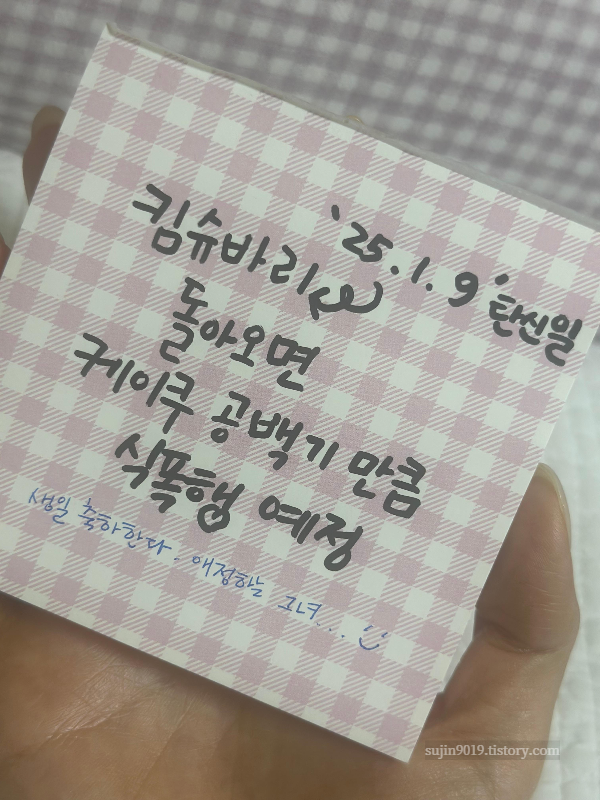 '25.1.9 탄신일
킴슈바리
돌아오면
케이쿠 공백기 만큼
식폭행 예정
생일 축하한다. 애정하는 그녀...
sujin9019.tistory.com